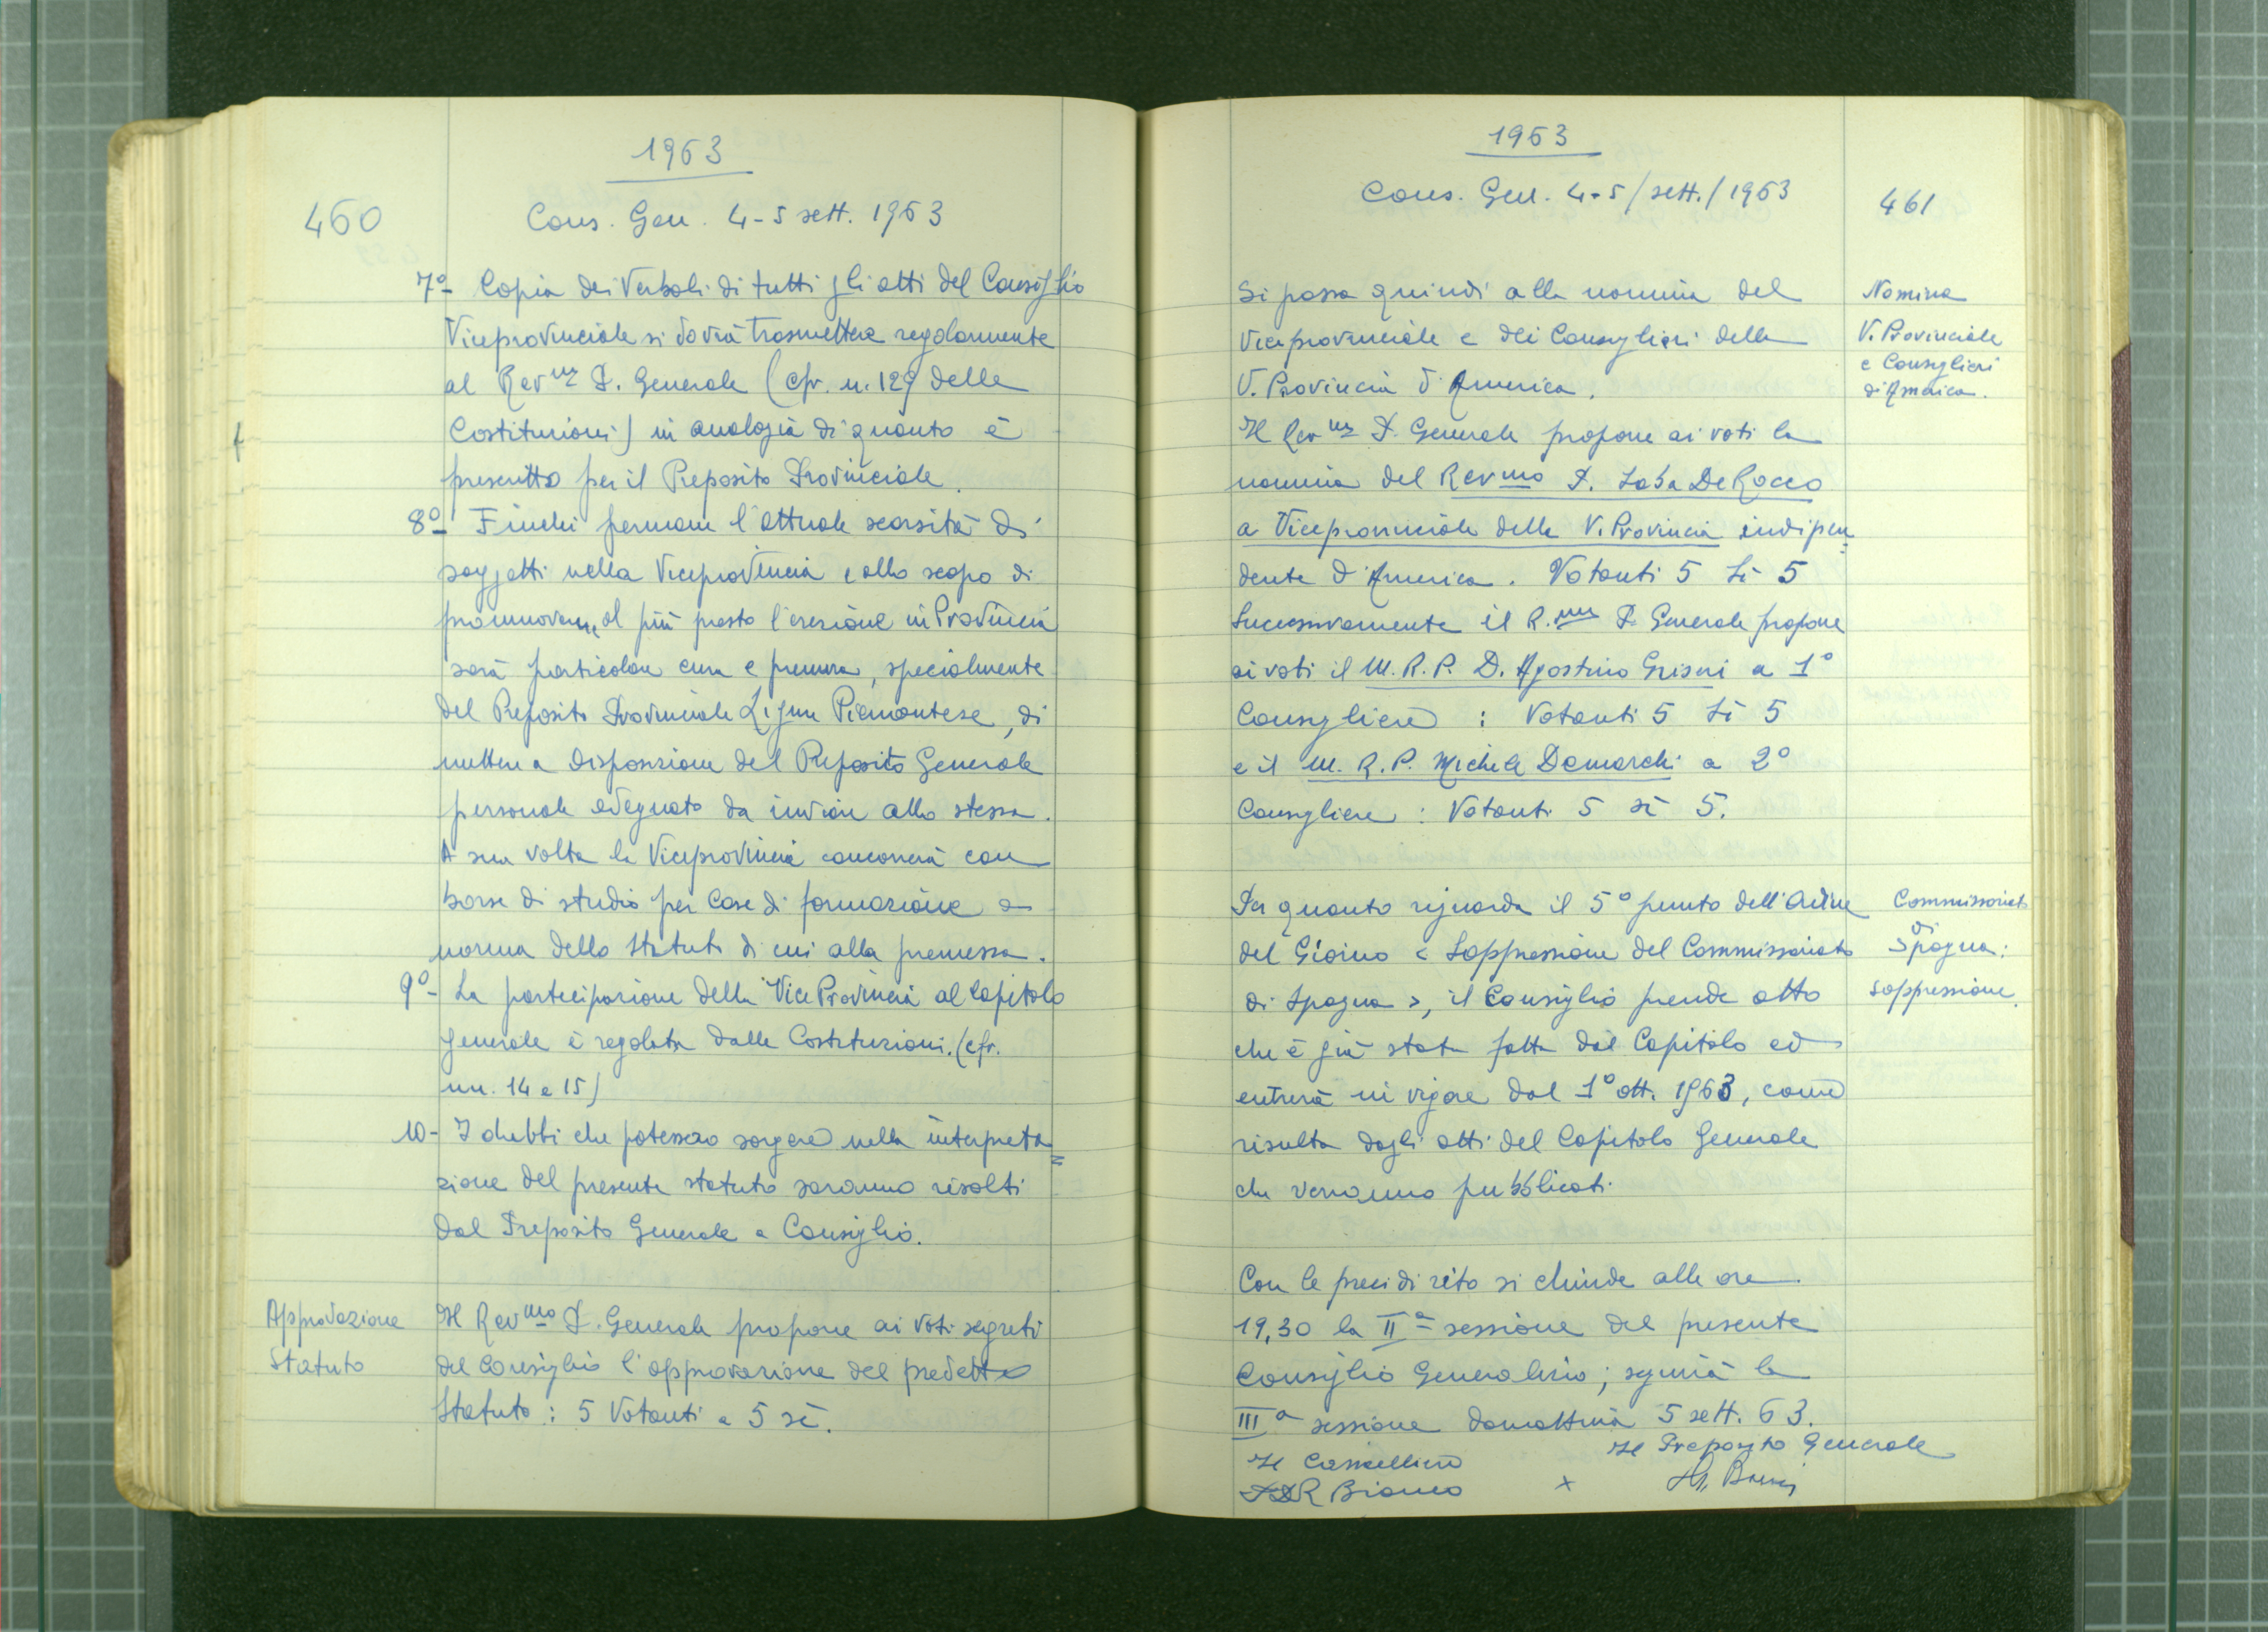 1963
460
Cons. Gen. 4-5 sett. 1963
7º- Copia dei Verbali di tutti gli atti del Consiglio
Viceprovinciale si dovrà trasmettere regolarmente
al Rev.mo P. Generale (cfr. n. 129 delle
Costituzioni) in analogia di quanto è
prescritto per il Preposito Provinciale.
8º- Finchè permane l'attuale scarsità di
soggetti nella Viceprovincia e allo scopo di
promuoverne al più presto l'erezione in Provincia
sarà particolare cura e premura, specialmente
del Preposito Provinciale Ligure Piemontese, di
mettere a disposizione del Preposito Generale
personale adeguato da inviare alla stessa.
A sua volta la Viceprovincia concorrerà con
borse di studio per Case di formazione a
norma dello Statuto di cui alla premessa.
9º- La partecipazione della Vice Provincia al Capitolo
Generale è regolata dalle Costituzioni. (cfr.
nn. 14 e 15)
10- I dubbi che potessero sorgere nella interpreta=
zione del presente statuto saranno risolti
dal Preposito Generale e Consiglio.
Approvazione
Statuto
Il Revmo P. Generale propone ai voti segreti
del Consiglio l'approvazione del predetto
Statuto: 5 Votanti e 5 sì.
1963
Cons. Gen. 4-5/sett./1963
461
Si passa quindi alla nomina del
Viceprovinciale e dei Consiglieri della
V. Provincia d'America.
Nomina
V. Provinciale
e Consiglieri
d'America.
Il Rev.mo P. Generale propone ai voti la
nomina del Revmo P. Saba De Rocco
a Viceprovinciale della V. Provincia indipen=
dente d'America. Votanti 5 Sì 5
Successivamente il R.mo P. Generale propone
ai voti il M. R. P. D. Agostino Griseri a 1º
Consigliere : Votanti 5 Sì 5
e il M. R. P. Michele Demarchi a 2º
Consigliere : Votanti 5 sì 5.
Per quanto riguarda il 5º punto dell'Ordine
del Giorno < Soppressione del Commissariato
di Spagna >, il Consiglio prende atto
che è già stata fatta dal Capitolo ed
entrerà in vigore dal 1º ott. 1963, come
risulta dagli atti del Capitolo Generale
che verranno pubblicati
Commissariato
di
Spagna:
soppressione.
Con le preci di rito si chiude alle ore
19,30 la IIª sessione del presente
Consiglio Generalizio; seguirà la
IIIª sessione domattina 5 sett. 63.
Il Cancelliere
Il Preposito Generale
Bianco
x